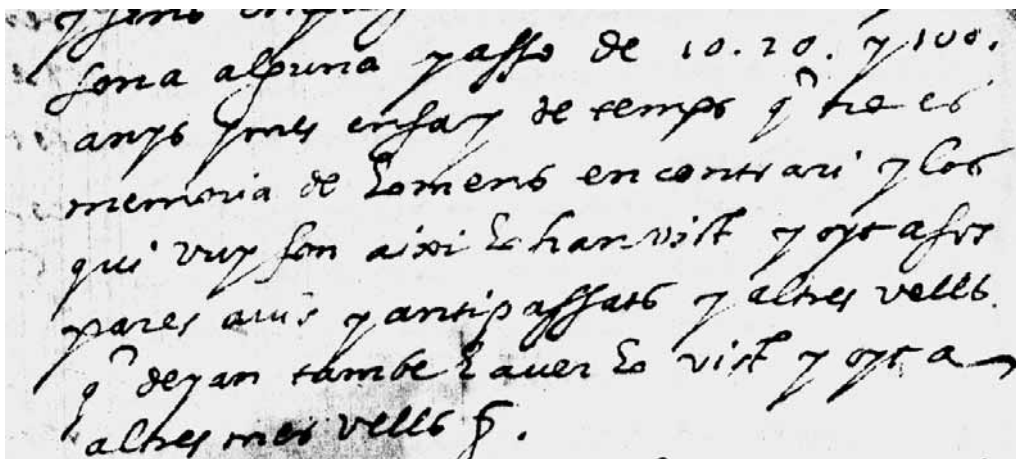 y sens
sona alguna y asso de 10. 20. y 100.
anys y mes ensay de temps q̃ no es
memoria de homens en contrari y los
qui vuy son aixi ho han vist y oyt a ses
pares avis y antipassats y altres vells.
q̃ deyan tambe haver ho vist y oyt a
altres mes vells